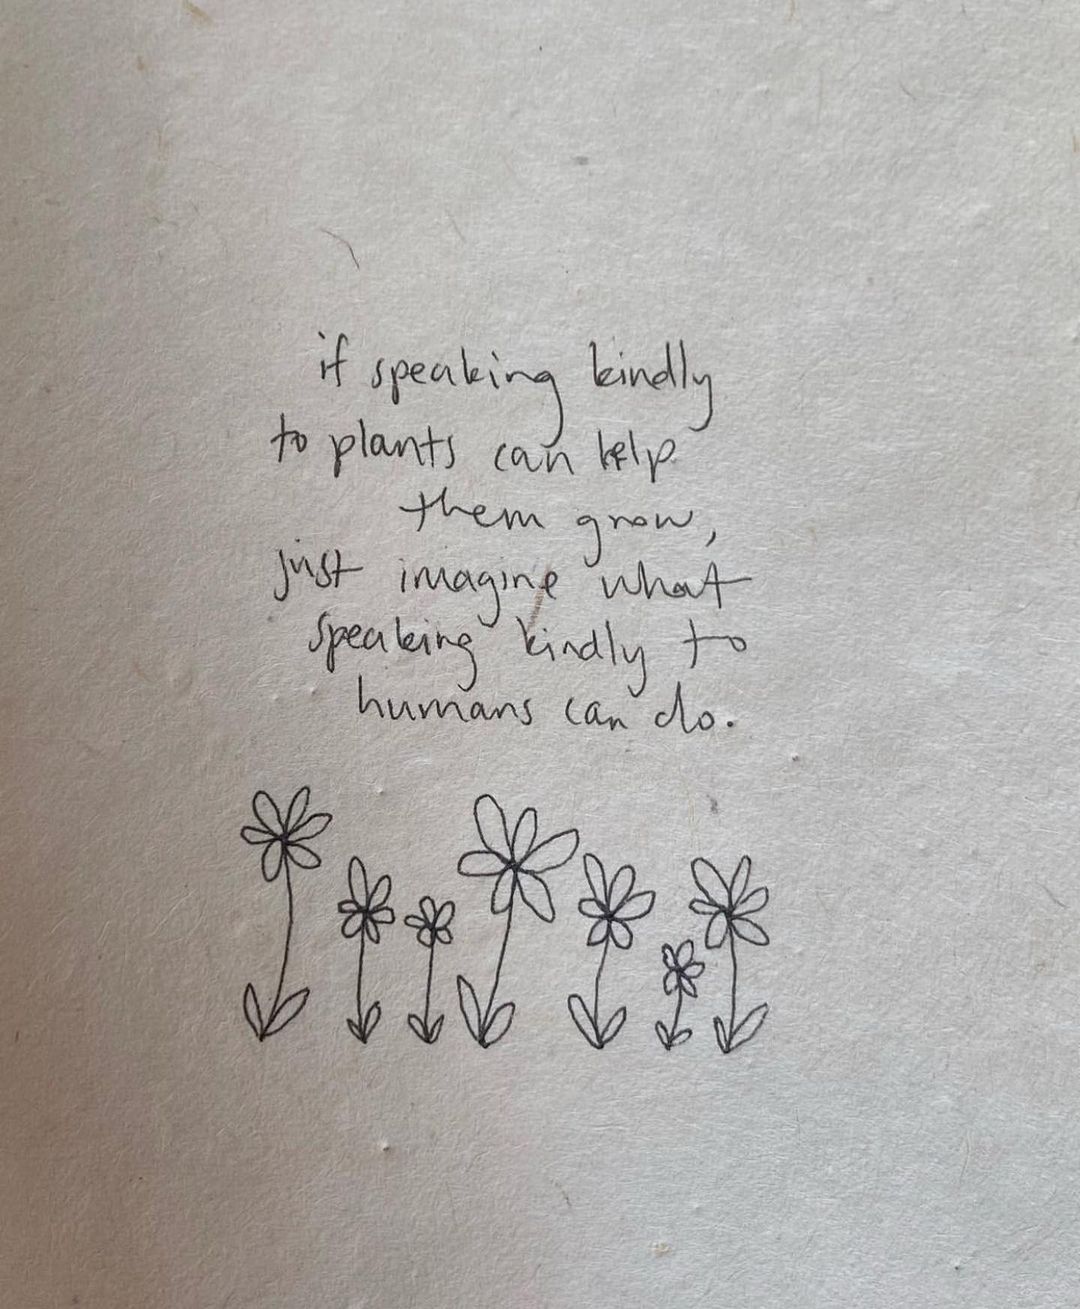 if speaking kindly
to plants can help
them grow,
just imagine what
speaking kindly to
humans can do.